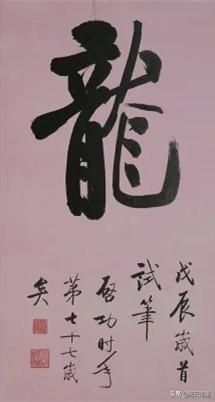 龍
戊辰歲首
試筆
啓功時年
第七十七歲
矣